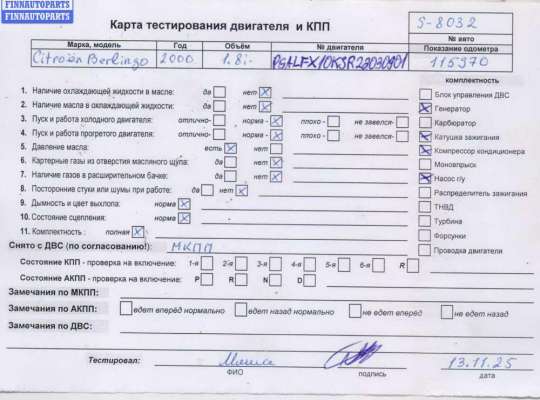 FINNAUTOPARTS
FINNAUTOPARTS
Карта тестирования двигателя и КПП
S-8032
№ авто
Марка, модель Год Объём № двигателя Показание одометра
Citroën Berlingo 2000 1.8i 115370
комплектность
1. Наличие охлаждающей жидкости в масле: да нет
2. Наличие масла в охлаждающей жидкости: да нет
3. Пуск и работа холодного двигателя: отлично- норма - плохо - не завелся-
4. Пуск и работа прогретого двигателя: отлично- норма - плохо - не завелся-
5. Давление масла: есть нет
6. Картерные газы из отверстия маслиного щупа: да нет
7. Наличие газов в расширительном бачке: да нет
8. Посторонние стуки или шумы при работе: да нет
9. Дымность и цвет выхлопа: норма
10. Состояние сцепления: норма
11. Комплектность : полная
Блок управления ДВС
Генератор
Карбюратор
Катушка зажигания
Компрессор кондиционера
Моновпрыск
Насос г/у
Распределитель зажигания
ТНВД
Турбина
Форсунки
Проводка двигателя
Снято с ДВС (по согласованию!): МКПП
Состояние КПП - проверка на включение: 1-я 2-я 3-я 4-я 5-я 6-я R
Состояние АКПП - проверка на включение: P R N D
Замечания по МКПП:
Замечания по АКПП: едет вперёд нормально едет назад нормально не едет вперёд не едет назад
Замечания по ДВС:
Тестировал: 13.11.25
ФИО подпись дата